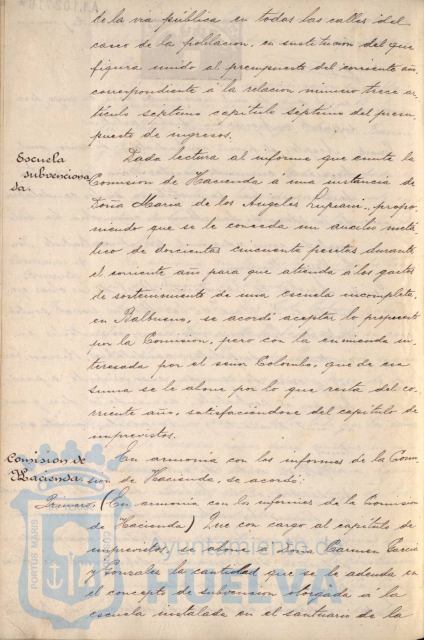 de la via pública en todas las calles del
casco de la poblacion, en sustitucion del que
figura unido al presupuesto del corriente año,
correspondiente á la relacion número trece ar-
tículo séptimo capítulo séptimo del presu-
puesto de ingresos.
Escuela
subvenciona
da.
Dada lectura al informe que emite la
Comision de Hacienda á una instancia de
Doña Maria de los Angeles Lupiani, propo-
niendo que se le conceda un aucilio metá-
lico de doscientas cincuenta pesetas durante
el corriente año para que atienda á los gastos
de sostenimiento de una escuela incompleta,
en Balbueno, se acordó aceptar lo propuesto
por la Comision, pero con la enmienda in-
teresada por el señor Colombo, que de esa
suma se le abone por lo que resta del co-
rriente año, satisfaciéndose del capítulo de
imprevistos.
Comision de
Hacienda.
En armonia con los informes de la Comi-
sion de Hacienda, se acordó:
Primero. (En armonia con los informes de la Comision
de Hacienda) Que con cargo al capítulo de
imprevistos, se abone á doña Carmen Garcia
y Gonzalez la cantidad que se le adeuda en
el concepto de subvencion otorgada á la
escuela instalada en el santuario de la
PORTUS MARIS
Ayuntamiento de
HUELVA